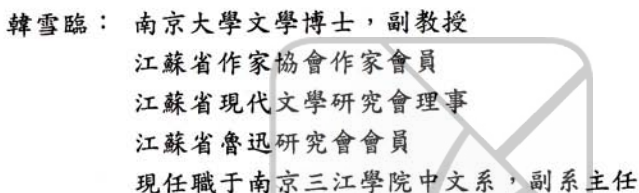 韓雪臨： 南京大學文學博士，副教授
江蘇省作家協會作家會員
江蘇省現代文學研究會理事
江蘇省魯迅研究會會員
現任職于南京三江學院中文系，副系主任